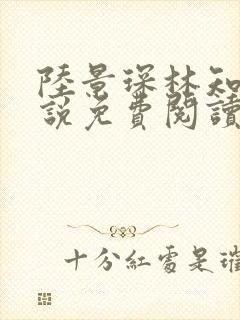 陸景琛林知
說免費閱讀
十分紅處是璀